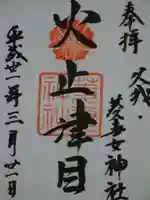 奉拝
久我・
菱妻神社
火止津目
平成廿一年三月廿一日